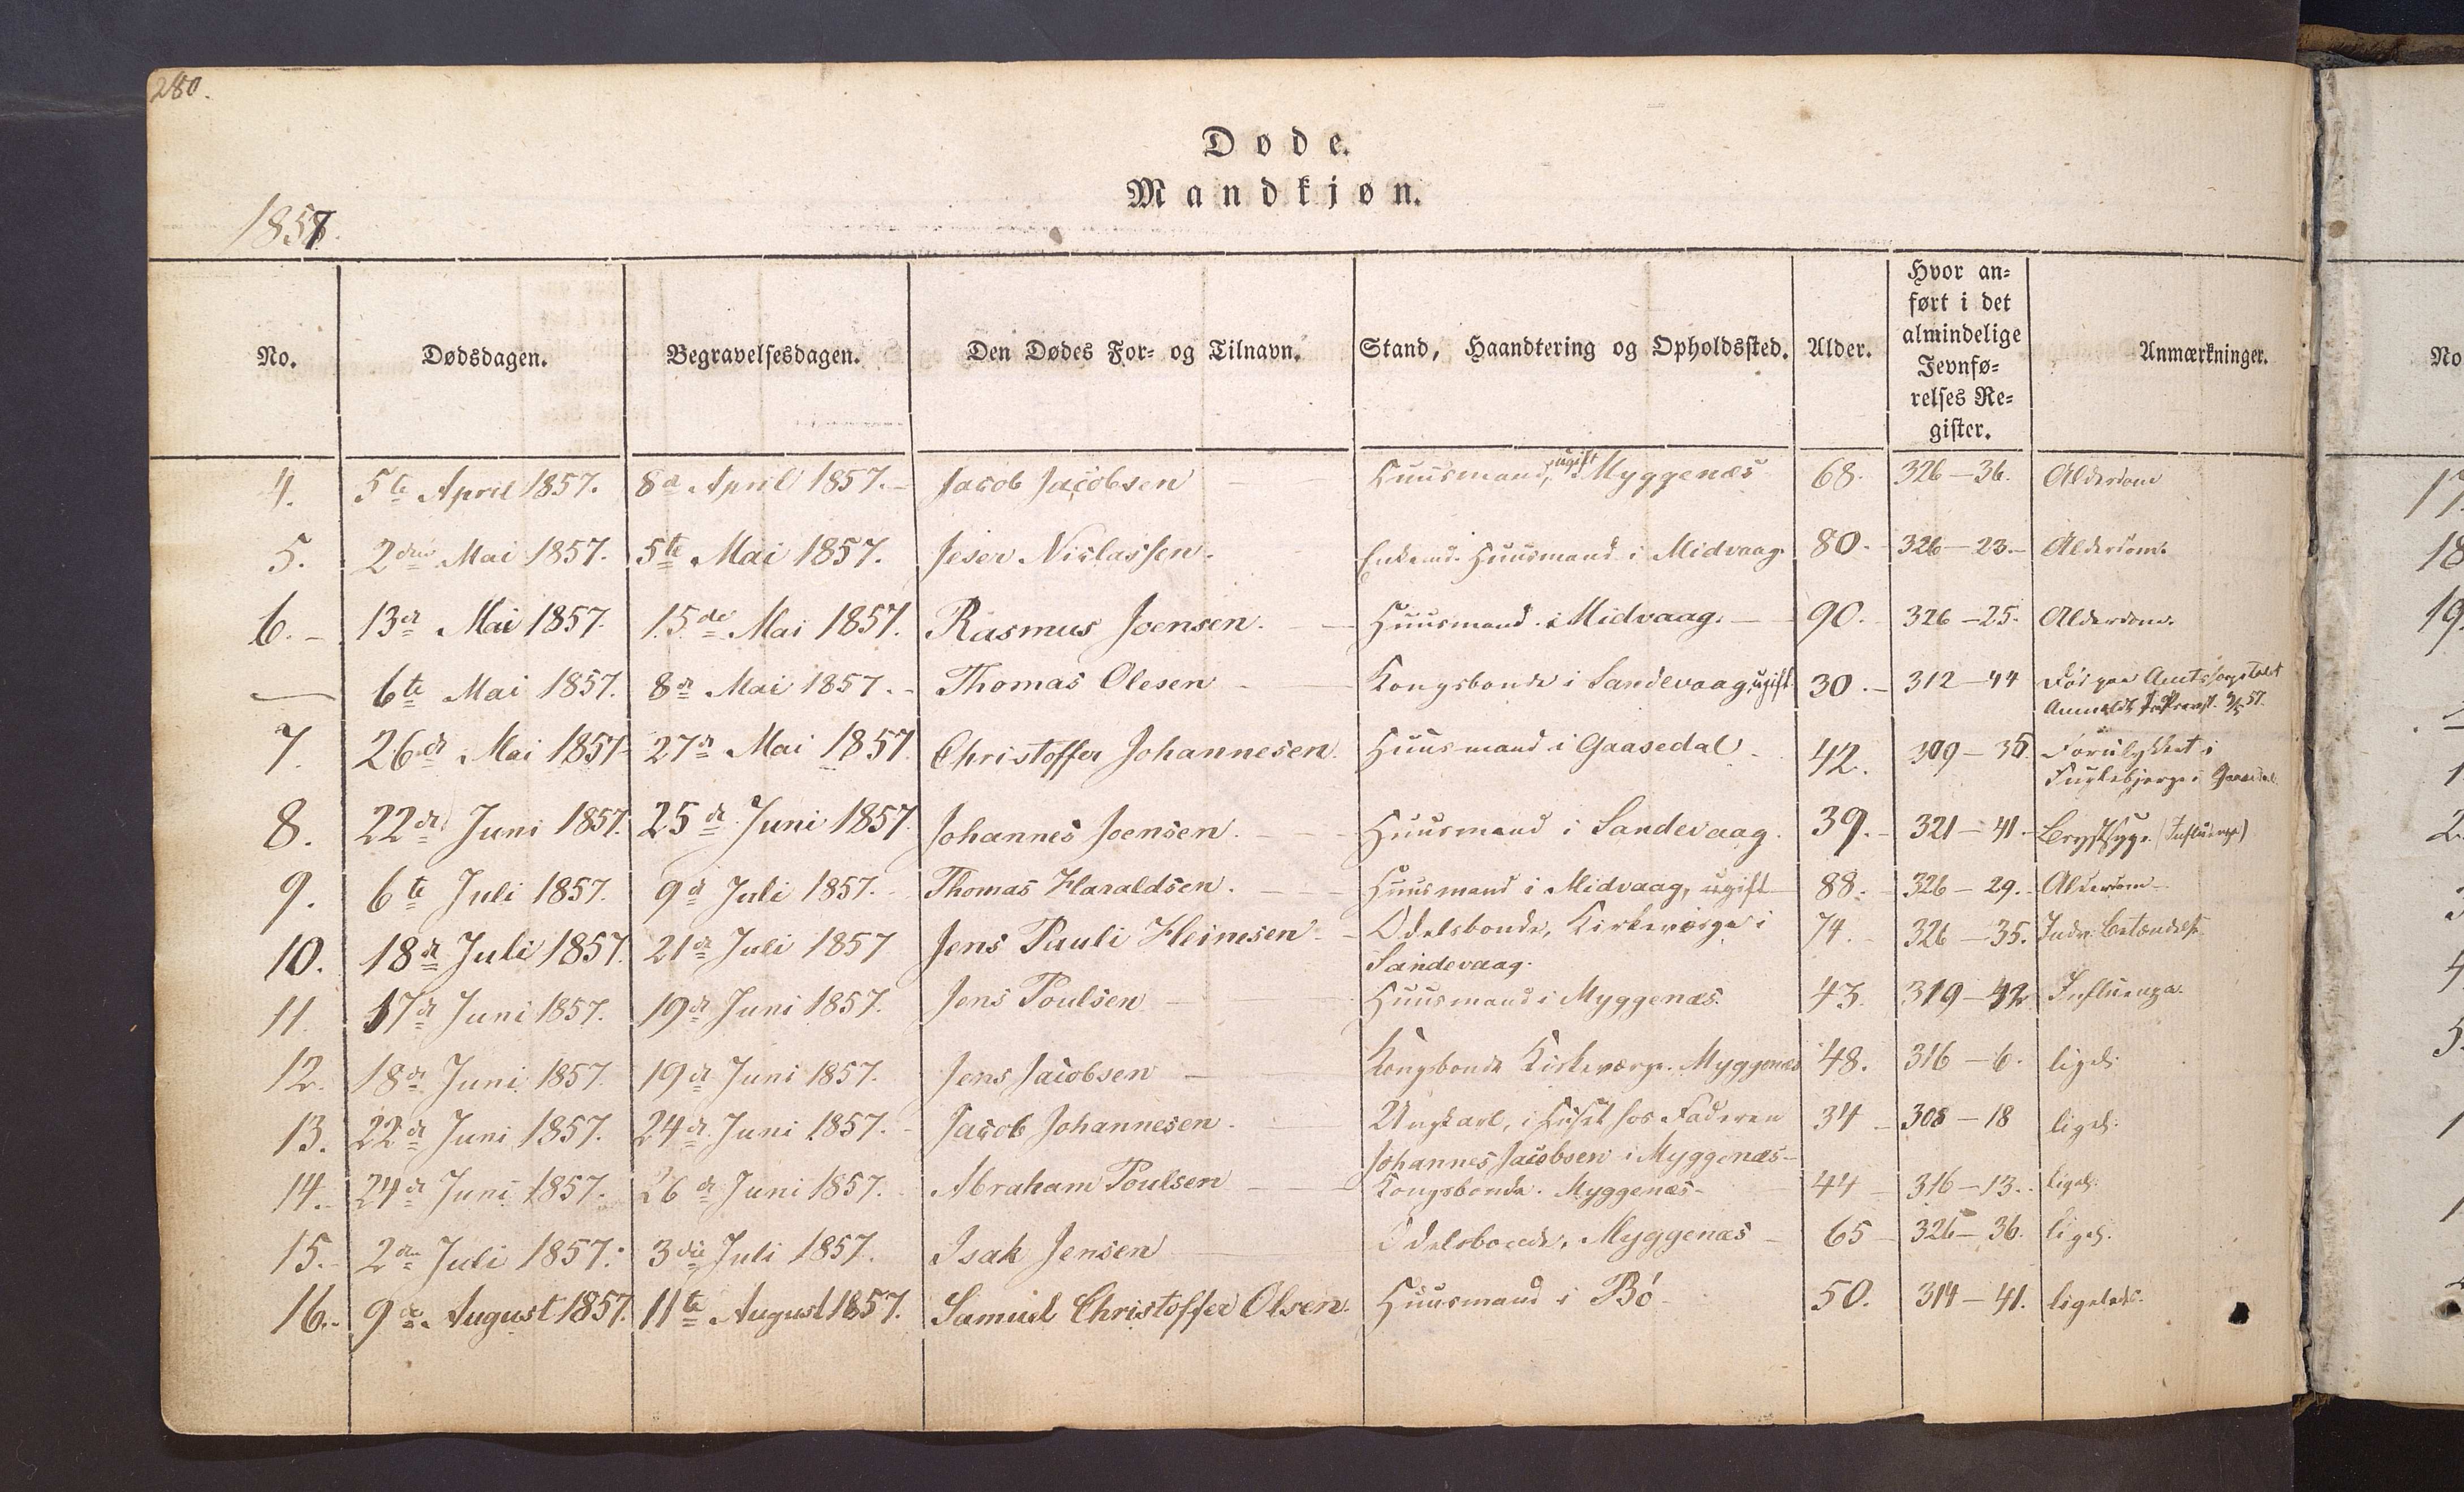 280.
Døde.
Mandkjøn.
1857.
No. Dødsdagen. Begravelsesdagen. Den Dødes For- og Tilnavn. Stand, Haandtering og Opholdssted. Alder. Hvor an-
ført i det
almindelige
Jevnfø-
relses Re-
gister. Anmærkninger.
4. 5te April 1857. 8de April 1857. Jacob Jacobsen Huusmand, ugift Myggenæs 68. 326-36. Alderdom
5. 2den Mai 1857. 5te Mai 1857. Joser Niclassen. Enkemd. Huusmand i Midvaag. 80. 326-23. Alderdom.
6. 13de Mai 1857. 15de Mai 1857. Rasmus Joensen. Huusmand i Midvaag. 90. 326-25. Alderdom.
— 6te Mai 1857. 8de Mai 1857. Thomas Olesen Kongsbonde i Sandevaag, ugift 30. 312-44 Død paa Amtshospitalet
Anmeldt
7. 26de Mai 1857 27de Mai 1857 Christoffer Johannesen. Huusmand i Gaasedal. 42. 309-35 Forulykket i
Fuglebjerge i Gaasedal.
8. 22de Juni 1857. 25de Juni 1857. Johannes Joensen. Huusmand i Sandevaag. 39. 321-41. Brystsyge (Influenza)
9. 6te Juli 1857. 9de Juli 1857. Thomas Haraldsen. Huusmand i Midvaag, ugift 88. 326-29. Alderdom
10. 18de Juli 1857. 21de Juli 1857 Jens Pauli Heinesen Odelsbonde, Kirkeværge i 74. 326-35. Indv. Betændelse
Sandevaag.
11. 17de Juni 1857. 19de Juni 1857. Jens Poulsen Huusmand i Myggenæs. 43. 319-42 Influenza.
12. 18de Juni 1857. 19de Juni 1857. Jens Jacobsen Kongsbonde Kirkeværge. Myggenæs 48. 316-6. ligel.
13. 22de Juni 1857. 24de Juni 1857. Jacob Johannesen. Ungkarl, i Huset hos Faderen 34 308-18 ligel.
Johannes Jacobsen i Myggenæs
14. 24de Juni 1857. 26de Juni 1857. Abraham Poulsen Kongsbonde. Myggenæs. 44 316-13. ligel.
15. 2den Juli 1857. 3die Juli 1857. Isak Jensen Odelsbonde, Myggenæs 65 326-36. ligel.
16. 9de August 1857. 11te August 1857. Samuel Christoffer Olsen. Huusmand i Bö 50. 314-41. ligeledes.
No
17.
18
19.